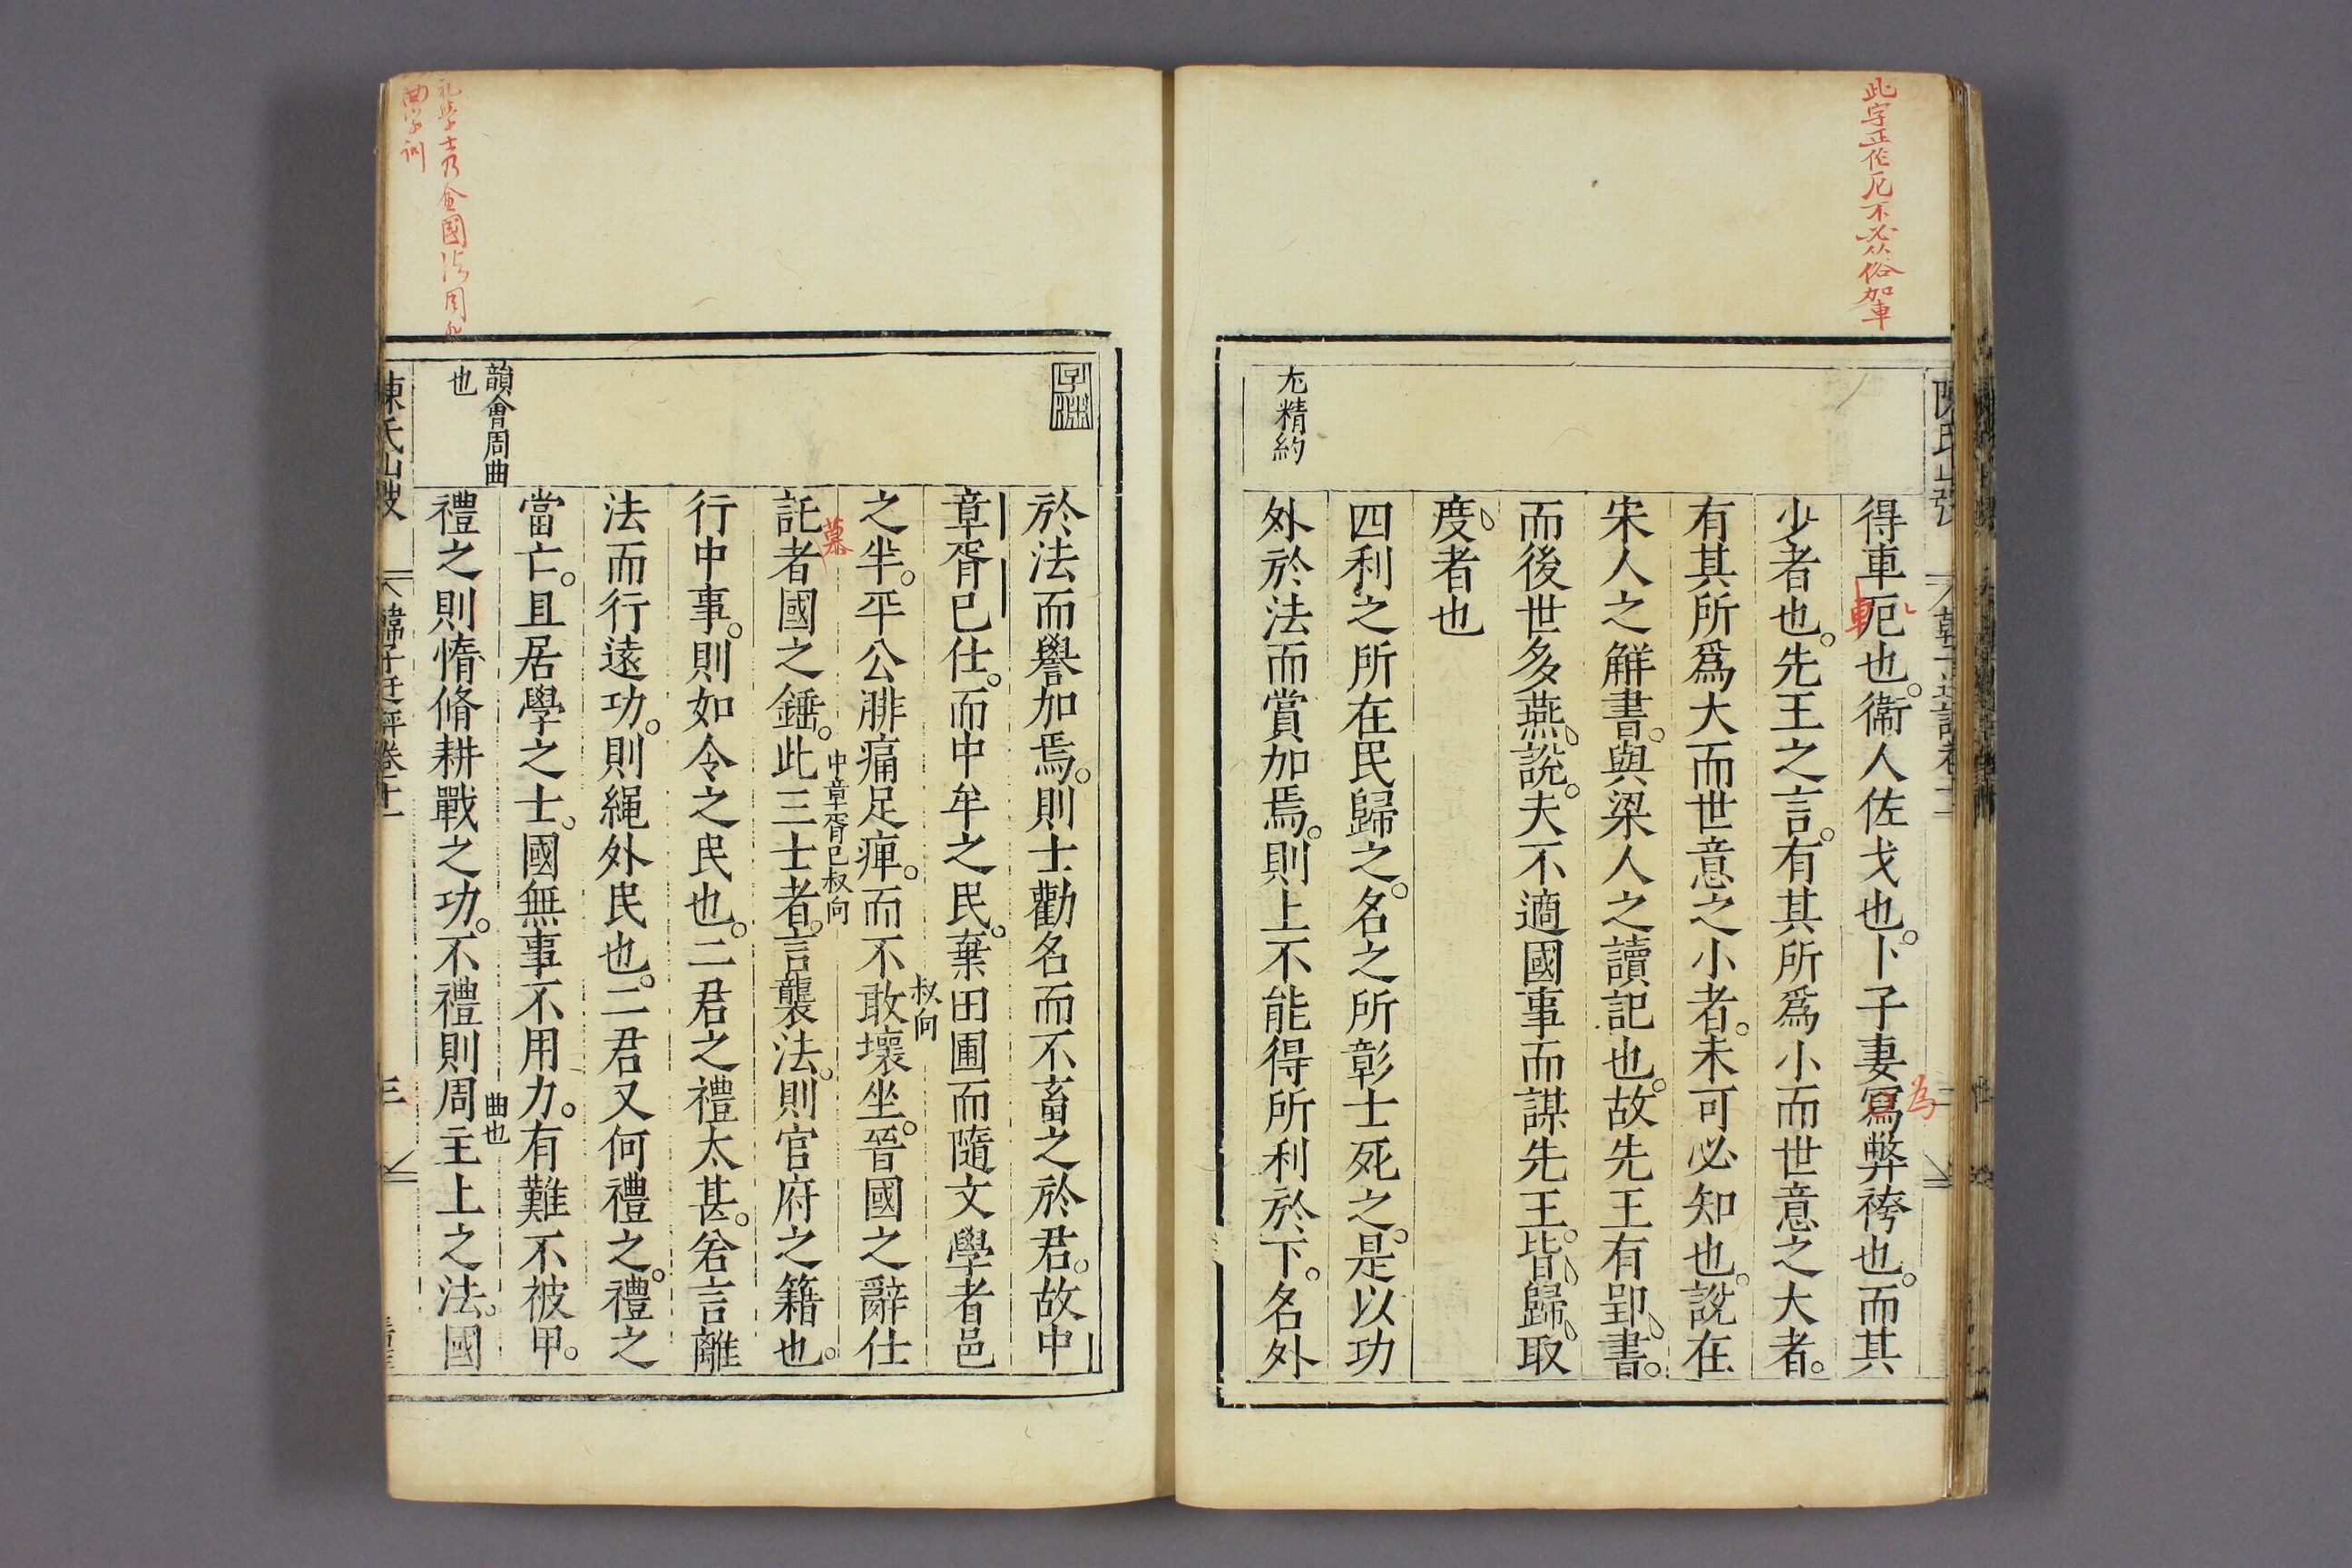 此字正作厄不必从俗加車
得車厄也衞人佐戈也卜子妻寫弊袴也而其
軛
為
少者也先王之言有其所爲小而世意之大者
有其所爲大而世意之小者未可必知也說在
宋人之解書與梁人之讀記也故先王有郢書
而後世多燕說夫不適國事而謀先王皆歸取
度者也
四利之所在民歸之名之所彰士死之是以功
尤精約
外於法而賞加焉則上不能得所利於下名外
於法而譽加焉則士勸名而不畜之於君故中
章胥已仕而中牟之民棄田圃而隨文學者邑
叔向
之半平公腓痛足痺而不敢壞坐晉國之辭仕
慕
中章胥已叔向
託者國之錘此三士者言襲法則官府之籍也
行中事則如令之民也二君之禮太甚若言離
法而行遠功則繩外民也二君又何禮之禮之
當亡且居學之士國無事不用力有難不被甲
韻會周曲
也
曲也
禮之則惰脩耕戰之功不禮則周主上之法國
陳氏
三